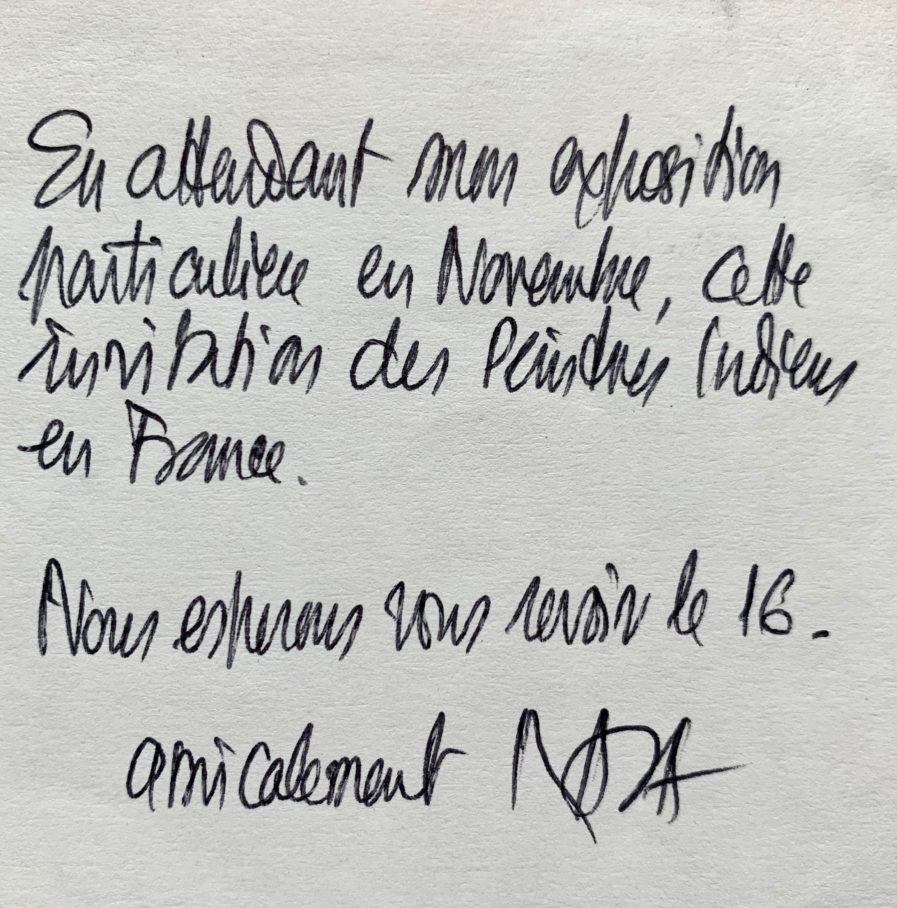 En attendant mon exposition
particulière en Novembre, cette
invitation des Peintres Indiens
en France.
Nous esperons vous revoir le 16.
amicalement